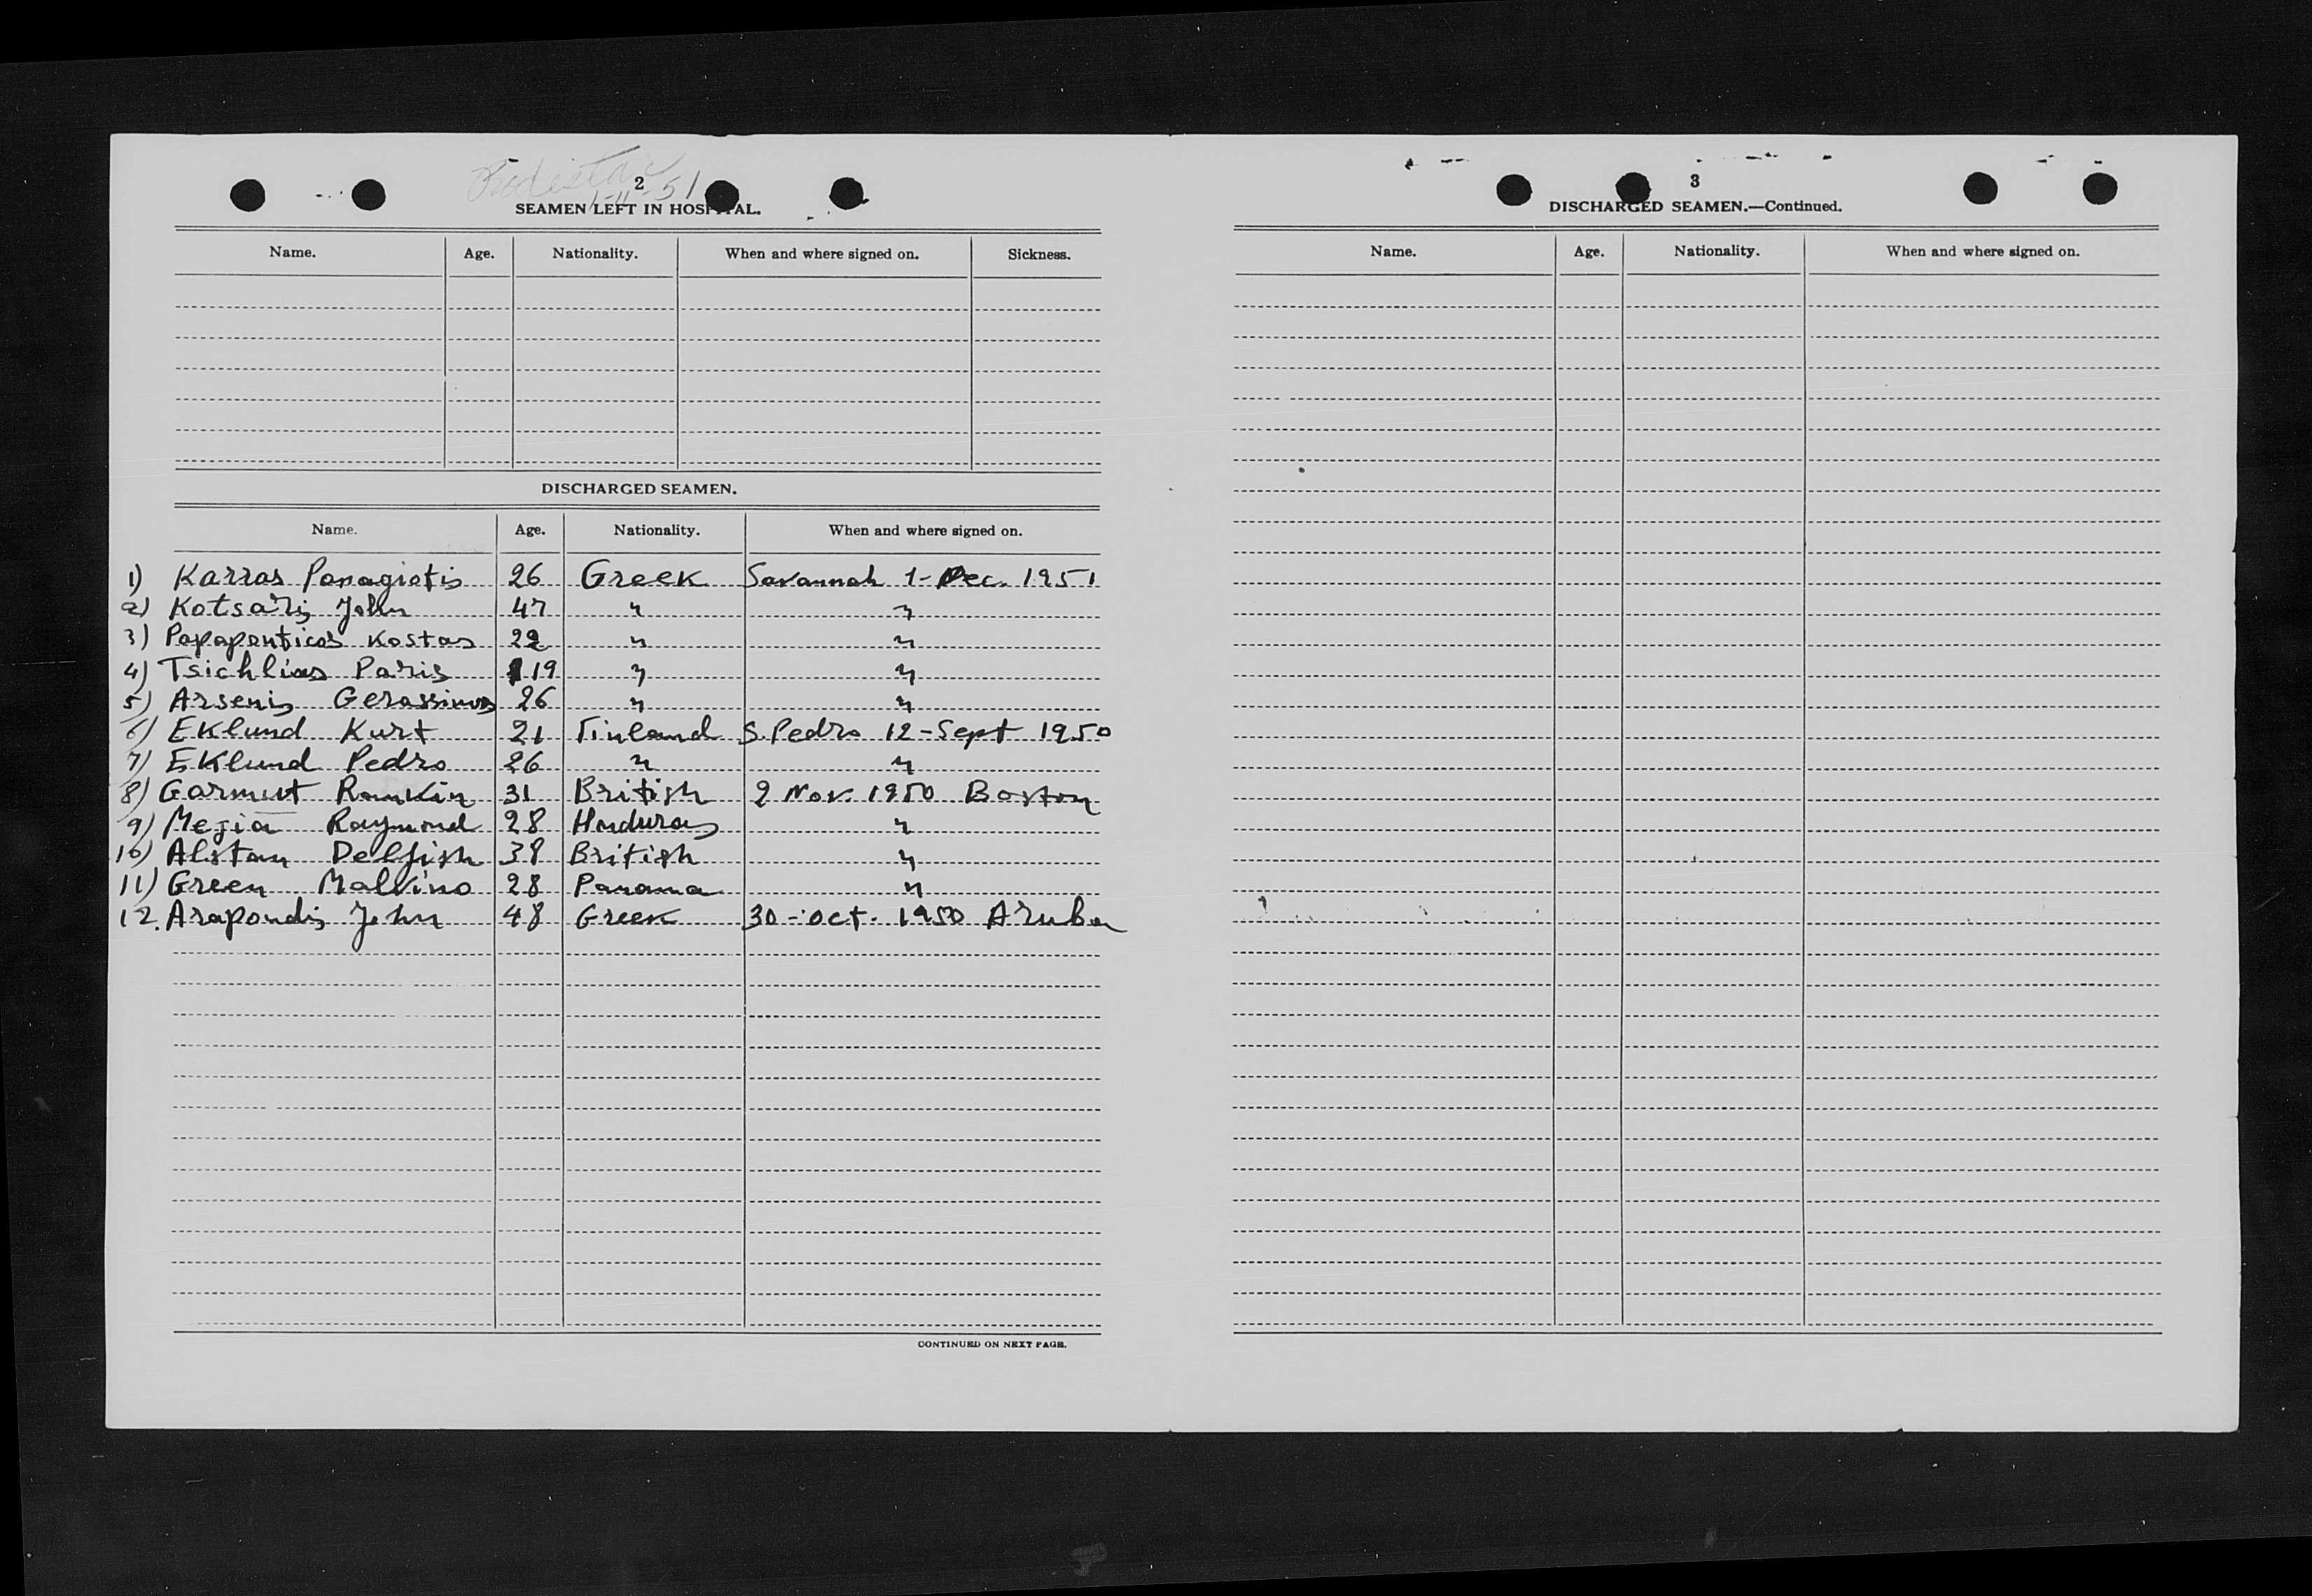 2
1-11-51
SEAMEN LEFT IN HOSPITAL.
Name. Age. Nationality. When and where signed on. Sickness.
DISCHARGED SEAMEN.
Name. Age. Nationality. When and where signed on.
1) Karras Panagiotis 26 Greek Savannah 1-Dec. 1951
2) Kotsaris John 47 " "
3) Papaponticos Kostas 22 " "
4) Tsichlias Paris 19 " "
5) Arsenis Gerassimos 26 " "
6) Eklund Kurt 21 Finland S. Pedro 12-Sept 1950
7) Eklund Pedro 26 " "
8) Garmut Rankin 31 British 2 Nov. 1950 Boston
9) Mejia Raymond 28 Honduras "
10) Alstan Delfish 38 British "
11) Green Malvino 28 Panama "
12. Arapoudis John 48 Greek 30-oct. 1950 Aruba
CONTINUED ON NEXT PAGE.
3
DISCHARGED SEAMEN.—Continued.
Name. Age. Nationality. When and where signed on.